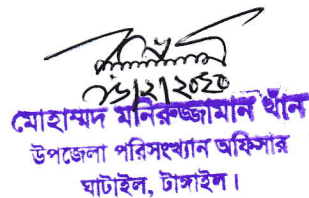 মোহাম্মদ মনিরুজ্জামান খাঁন
উপজেলা পরিসংখ্যান অফিসার
ঘাটাইল, টাঙ্গাইল।